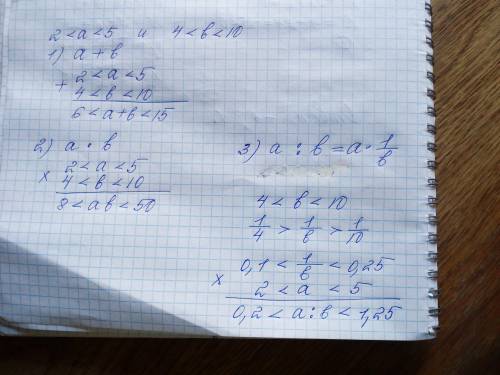 2 < a < 5 и 4 < в < 10
1) a + в
+ 2 < a < 5
4 < в < 10
6 < a + в < 15
2) a · в
× 2 < a < 5
4 < в < 10
8 < aв < 50
3) a : в = a · 1/в
4 < в < 10
1/4 > 1/в > 1/10
0,1 < 1/в < 0,25
× 2 < a < 5
0,2 < a : в < 1,25